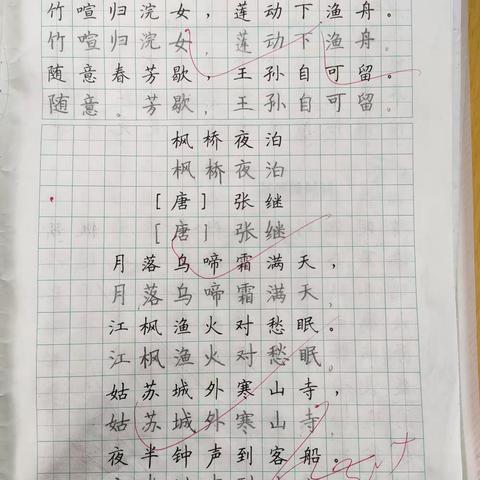 竹喧归浣女，莲动下渔舟。
竹喧归浣女，莲动下渔舟。
随意春芳歇，王孙自可留。
随意。芳歇，王孙自可留。
枫桥夜泊
枫桥夜泊
[唐] 张继
[唐] 张继
月落乌啼霜满天，
月落乌啼霜满天，
江枫渔火对愁眠。
江枫渔火对愁眠。
姑苏城外寒山寺，
姑苏城外寒山寺，
夜半钟声到客船。